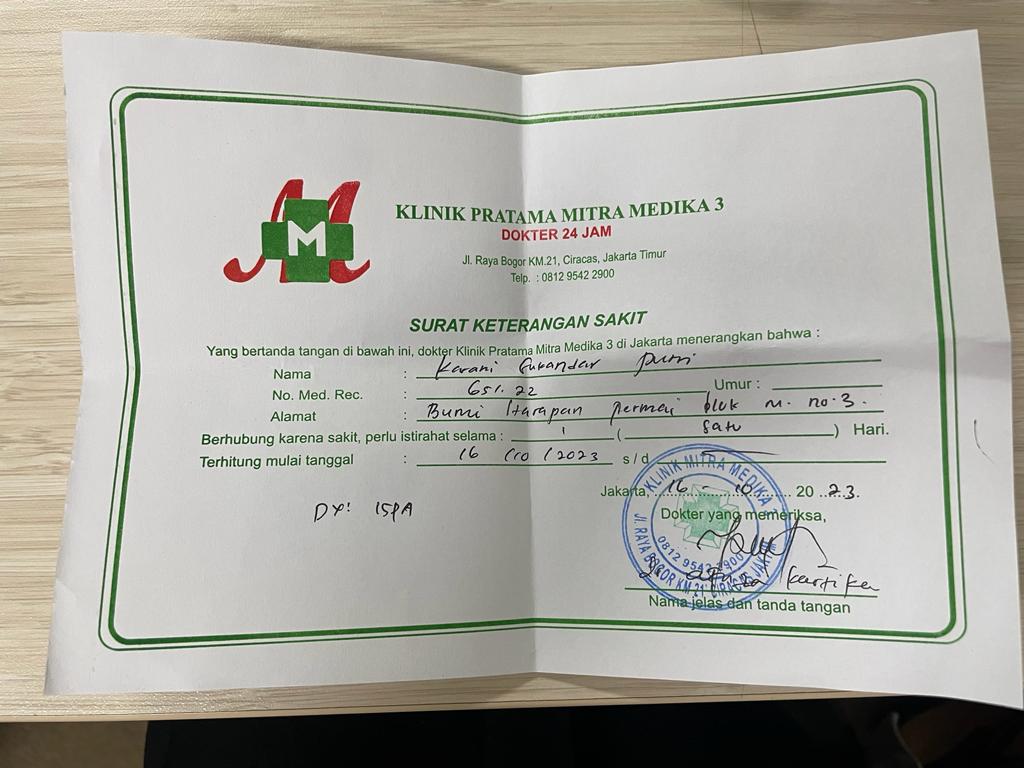 M
KLINIK PRATAMA MITRA MEDIKA 3
DOKTER 24 JAM
Jl. Raya Bogor KM.21, Ciracas, Jakarta Timur
Telp. : 0812 9542 2900
SURAT KETERANGAN SAKIT
Yang bertanda tangan di bawah ini, dokter Klinik Pratama Mitra Medika 3 di Jakarta menerangkan bahwa :
Nama :
No. Med. Rec. : 651.22 Umur :
Alamat : Bumi Harapan permai blok M. no.3.
Berhubung karena sakit, perlu istirahat selama : 1 ( satu ) Hari.
Terhitung mulai tanggal : 16 /10 /2023 s/d
Jakarta, 16 - 10 2023.
Dokter yang memeriksa,
DX: ISPA
KLINIK MITRA MEDIKA 3
0812 9542 2900
JL. RAYA BOGOR KM.21 CIRACAS JAKTIM
Kartika
Nama jelas dan tanda tangan